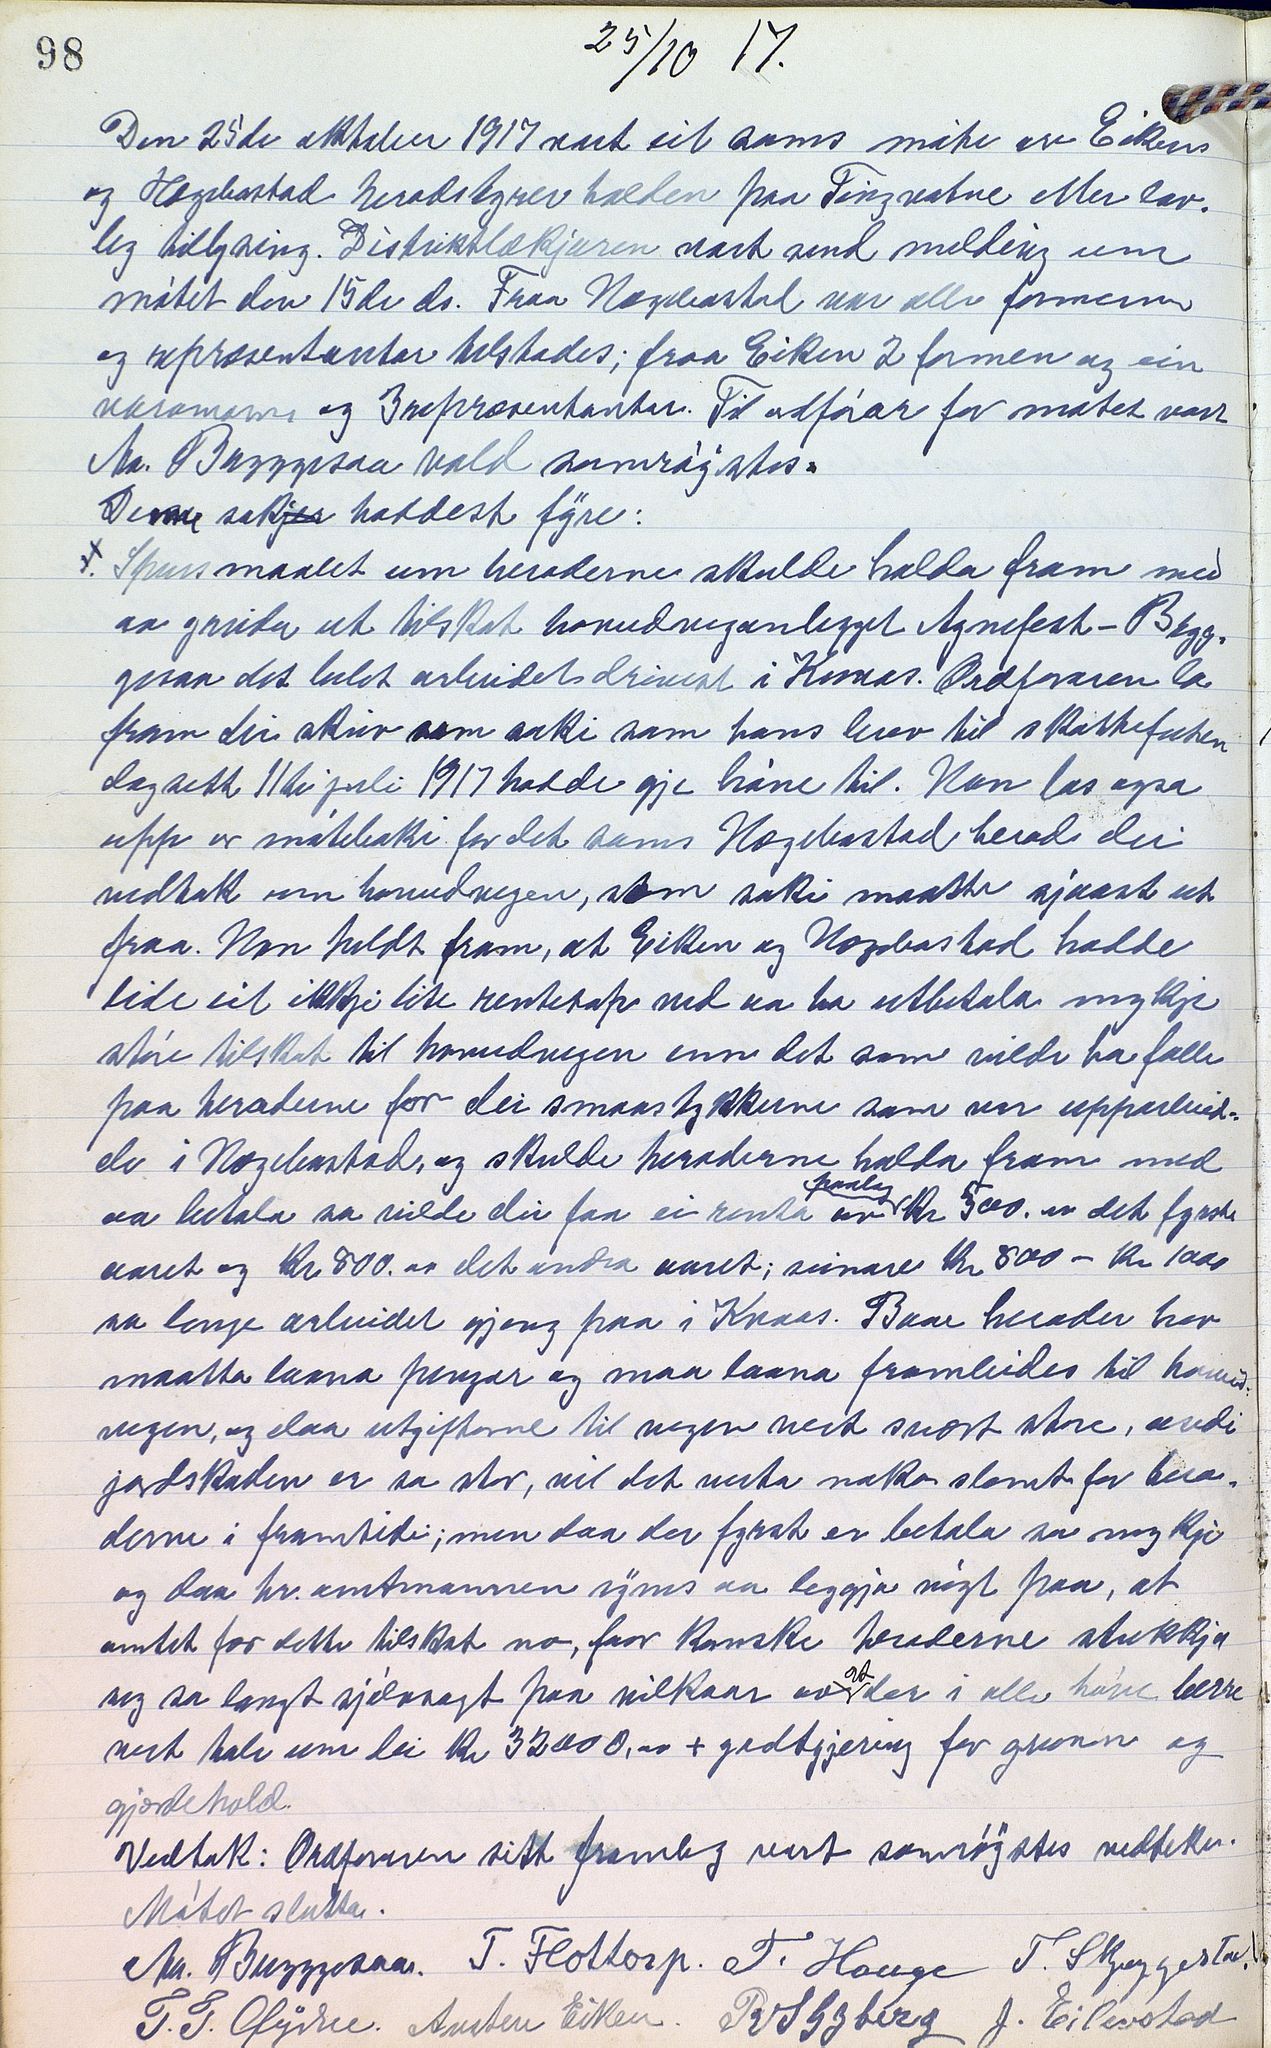 98
25/10 17.
Den 25de oktober 1917 vart eit sams møte av Eikens
og Hægebostad heradstyrer halden paa Tingvatne etter lov-
leg tillysing. Distriktlækjaren vart send melding um
møtet den 15de ds. Fraa Hægebostad var alle formenn
og repræsentantar tilstades; fraa Eiken 2 formen og ein
varamann og 3 repræsentantar. Til ordførar for møtet vart
Aa. Byggesaa vald samrøystes.
Denne sakjer haddest fyre:
1. Spursmaalet um heraderne skulde halda fram med
aa greida ut tilskot hovudveganlegget Agnefest – Bygg-
gesaa det bulet arbeidet drivest i Kvaas. Ordføraren la
fram dei skriv som saki som hans brev til skattefuten
dagsett 11te juli 1917 hadde gje høve til. Han las ogsa
upp or møteboki for det sams Hægebostad herad dei
vedtak um hovudvegen, som saki maatte sjaast ut
fraa. Han heldt fram, at Eiken og Hægebostad hadde
lide eit ikkje lite rentetap ved aa ha utbetala mykje
støre tilskot til hovudvegen enn det som vilde ha falle
paa heraderne for dei smaastykkerne som var upparbeid-
de i Hægebostad, og skulde heraderne halda fram med
aa betala sa vilde dei faa ei renta paalag av Kr 500.00 det fyrste
aaret og Kr 800.00 det andra aaret; seinare Kr 800 – Kr 1000
sa lenge arbeidet gjeng paa i Kvaas. Baae herader hev
maatta laana pengar og maa laana framleides til hovud-
vegen, og daa utgifterne til vegen vert svært store, avdi
jordskaden er sa stor, vil det verta noko slemt for hera-
derne i framtidi; men daa der fyrst er betala sa mykje
og daa hr. amtmannen synes aa leggja vegt paa, at
amtet for dette tilskot no, faar kanske heraderne strekkja
seg sa langt sjølvsagt paa vilkaar av at der i alle høve berre
vert tale um dei Kr 32000,00 + godtgjering for grunn og
gjerdehold.
Vedtak: Ordføraren sitt framlegg vart samrøystes vedteke.
Møtet slutta.
Aa. Byggesaa. T. Flottorp. T. Hauge T. Skeggestad.
T. T. Øydne. Anten Eiken. P Vsthgberg J. Eilevstad